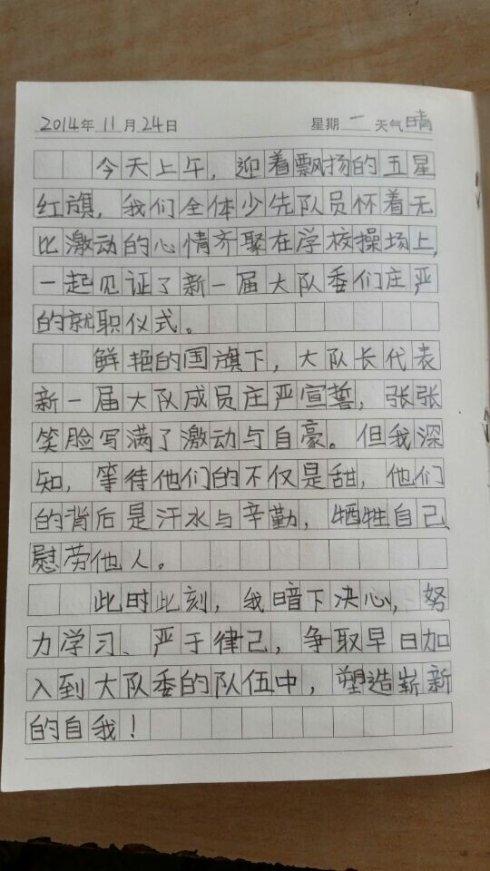 2014年11月24日 星期一 天气晴
今天上午，迎着飘扬的五星
红旗，我们全体少先队员怀着无
比激动的心情齐聚在学校操场上，
一起见证了新一届大队委们庄严
的就职仪式。
鲜艳的国旗下，大队长代表
新一届大队成员庄严宣誓，张张
笑脸写满了激动与自豪。但我深
知，等待他们的不仅是甜，他们
的背后是汗水与辛勤，牺牲自己、
慰劳他人。
此时此刻，我暗下决心，努
力学习、严于律己，争取早日加
入到大队委的队伍中，塑造崭新
的自我！